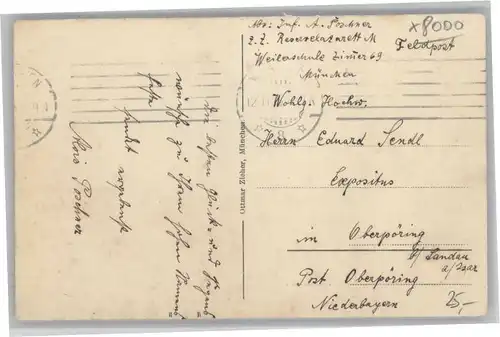 Die besten Glück- und Segens-
wünsche zu Ihrem hohen Namens-
feste sendet ergebenst
Poschner
Ottmar Zieher, München
Abs: Inf. A. Poschner
z. Z. Reservelazarett M
Weilerschule Zimmer 69
München
x8000
Feldpost
Wohlg. Hochw.
Herrn Eduard Sendl
Expositus
in Oberpöring
b/ Landau
a/Isar
Post Oberpöring
Niederbayern
25,-